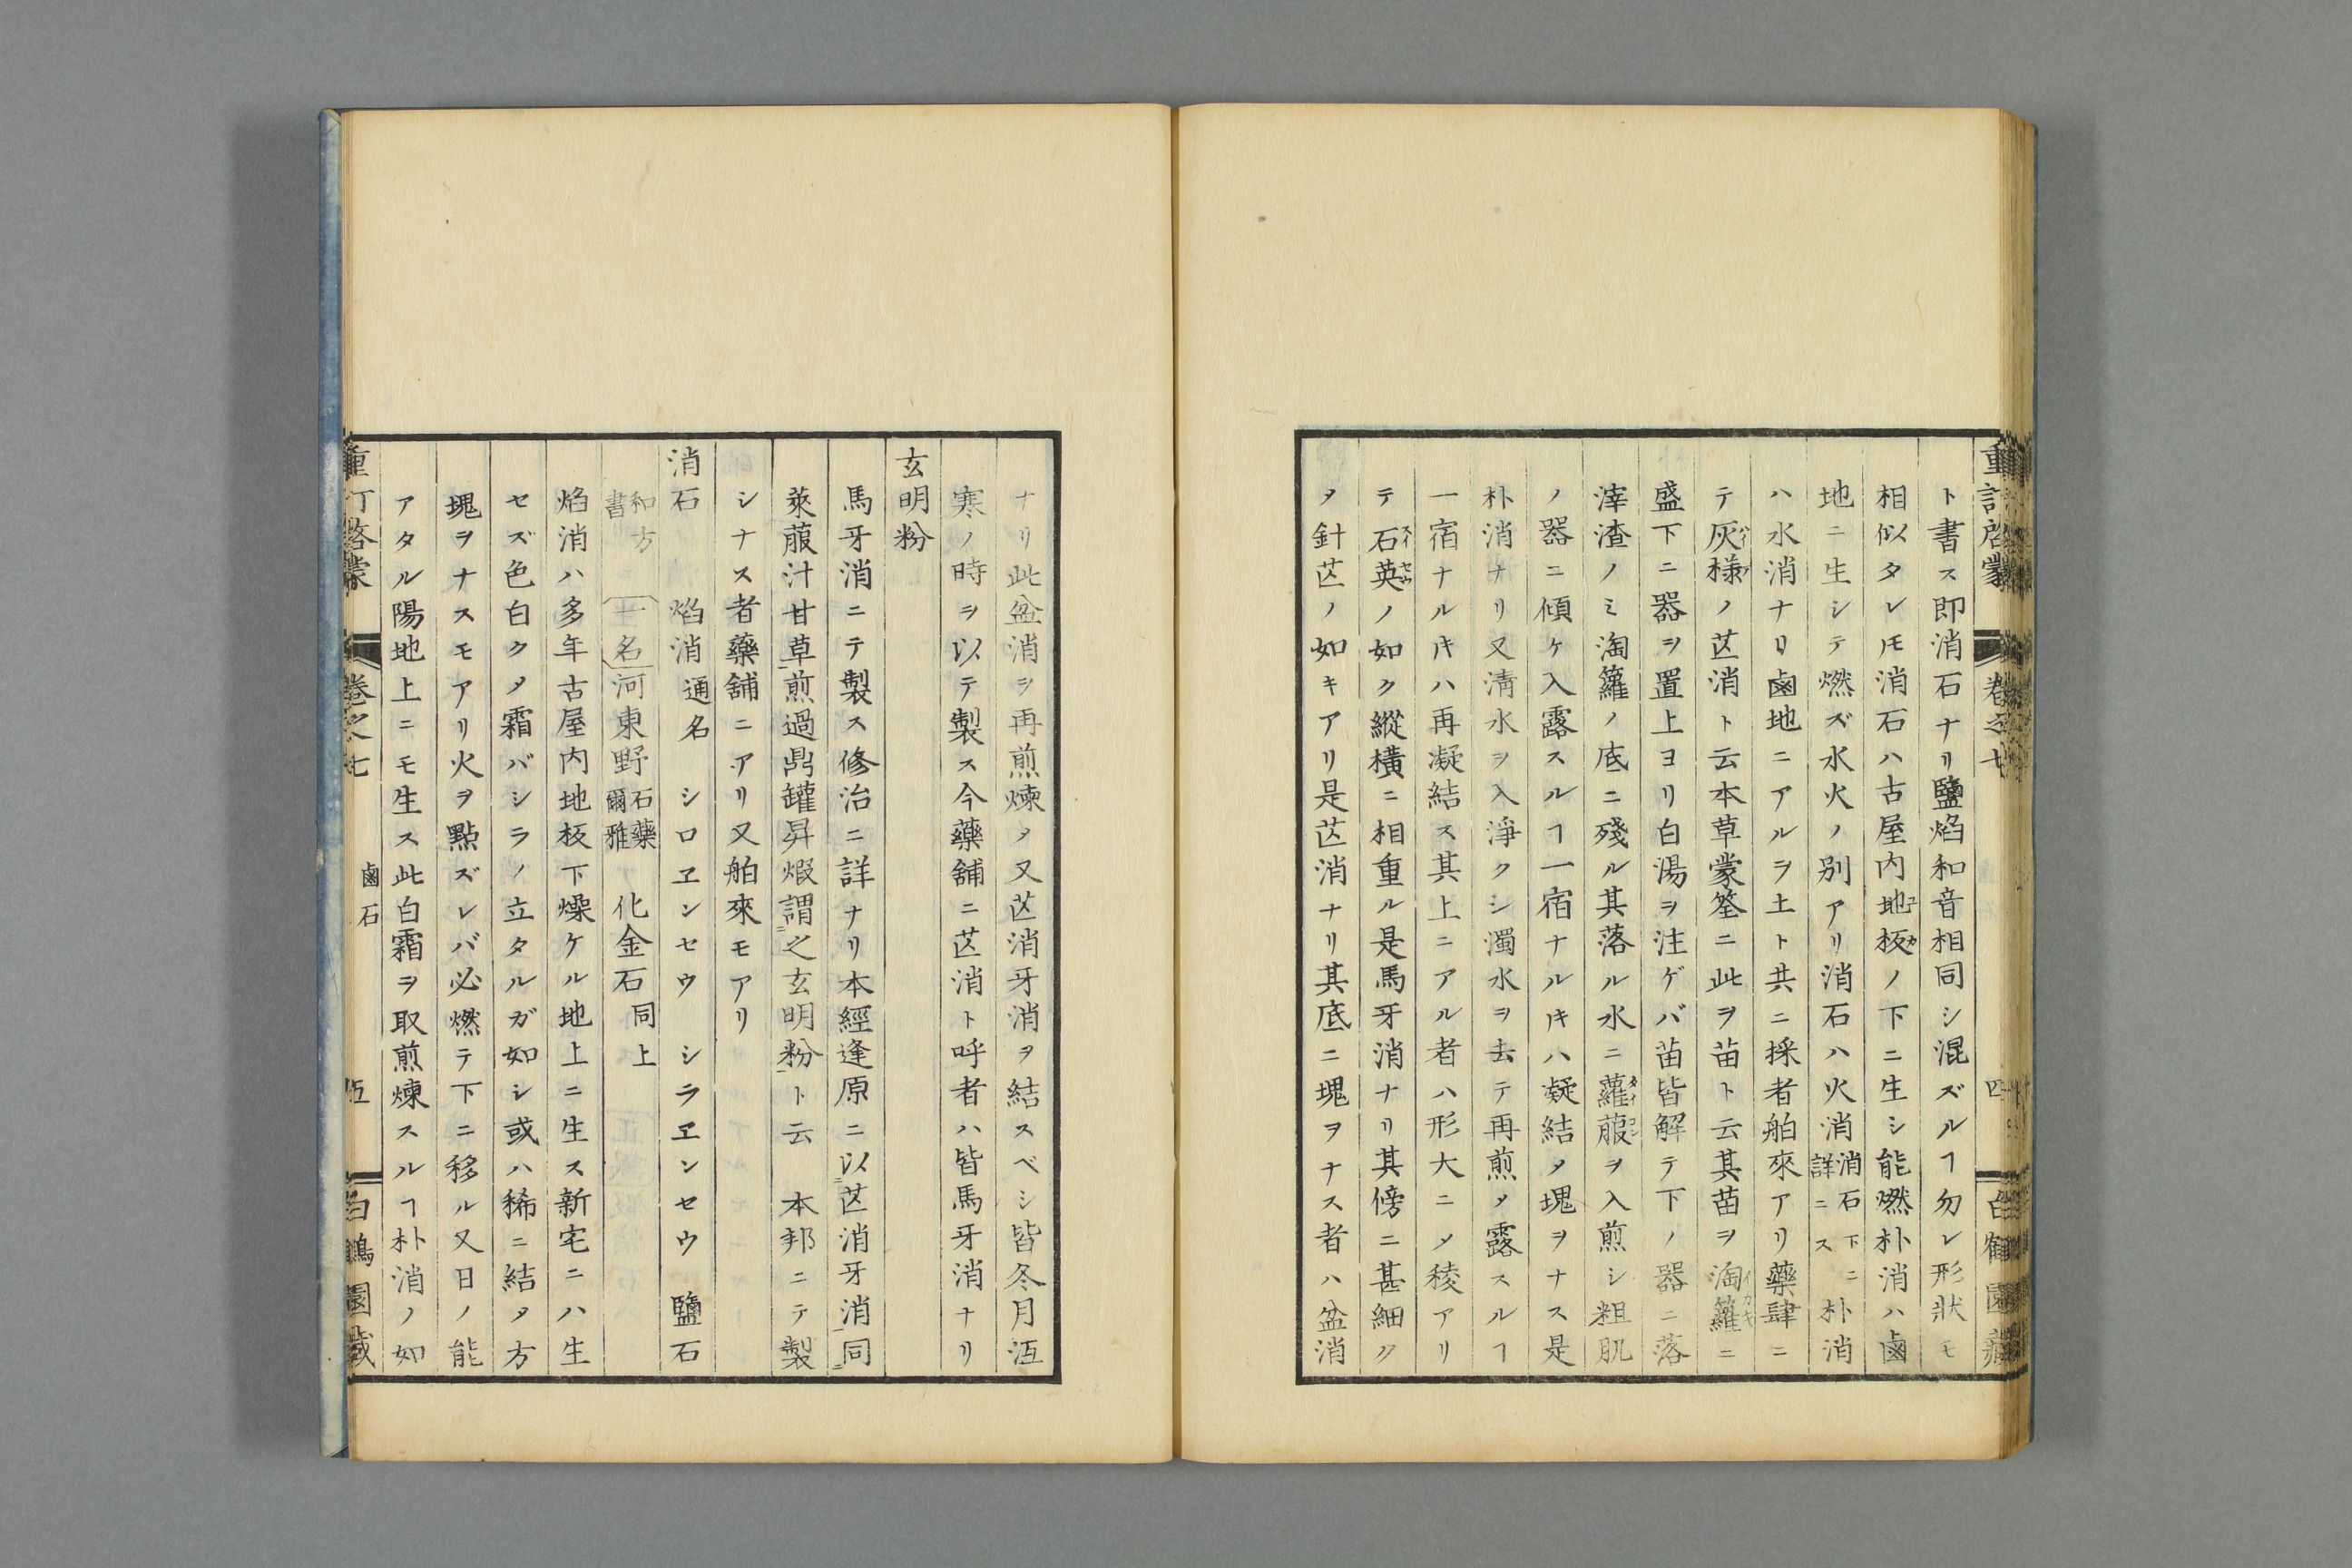 重訂啓蒙 卷之七 四
ト書ス即消石ナリ鹽焰和音相同シ混ズルヿ勿レ形狀モ
相似タレㇳモ消石ハ古屋内地板ノ下ニ生シ能燃朴消ハ鹵
地ニ生シテ燃ズ水火ノ別アリ消石ハ火消消石下ニ詳ニス朴消
ハ水消ナリ鹵地ニアルヲ土ト共ニ採者舶來アリ藥肆ニ
テ灰様ノ芒消ト云本草蒙筌ニ此ヲ苗ト云其苗ヲ淘籮ニ
盛下ニ器ヲ置上ヨリ白湯ヲ注ゲバ苗皆解テ下ノ器ニ落
滓渣ノミ淘籮ノ底ニ殘ル其落ル水ニ蘿菔ヲ入煎シ粗肌
ノ器ニ傾ケ入露スルヿ一宿ナルㇳキハ凝結メ塊ヲナス是
朴消ナリ又淸水ヲ入淨クシ濁水ヲ去テ再煎メ露スルヿ
一宿ナルㇳキハ再凝結ス其上ニアル者ハ形大ニメ稜アリ
テ石英ノ如ク縱橫ニ相重ル是馬牙消ナリ其傍ニ甚細ク
メ針芒ノ如キアリ是芒消ナリ其底ニ塊ヲナス者ハ盆消
ナリ此盆消ヲ再煎煉メ又芒消牙消ヲ結スベシ皆冬月沍
寒ノ時ヲ以テ製ス今藥舖ニ芒消ト呼者ハ皆馬牙消ナリ
玄明粉
馬牙消ニテ製ス修治ニ詳ナリ本經逢原ニ以芒消牙消同
萊菔汁甘草煎過鼎罐昇煆謂之玄明粉ト云 本邦ニテ製
シナス者藥舖ニアリ又舶來モアリ
消石 焰消通名 シロヱンセウ シラヱンセウ 鹽石
和方書 一名河東野石藥爾雅 化金石同上
焰消ハ多年古屋内地板下燥ケル地上ニ生ス新宅ニハ生
セズ色白クメ霜バシラノ立タルガ如シ或ハ稀ニ結メ方
塊ヲナスモアリ火ヲ點ズレバ必燃テ下ニ移ル又日ノ能
アタル陽地上ニモ生ス此白霜ヲ取煎煉スルヿ朴消ノ如
重訂啓蒙 卷之七 鹵石 五 白鶴園藏